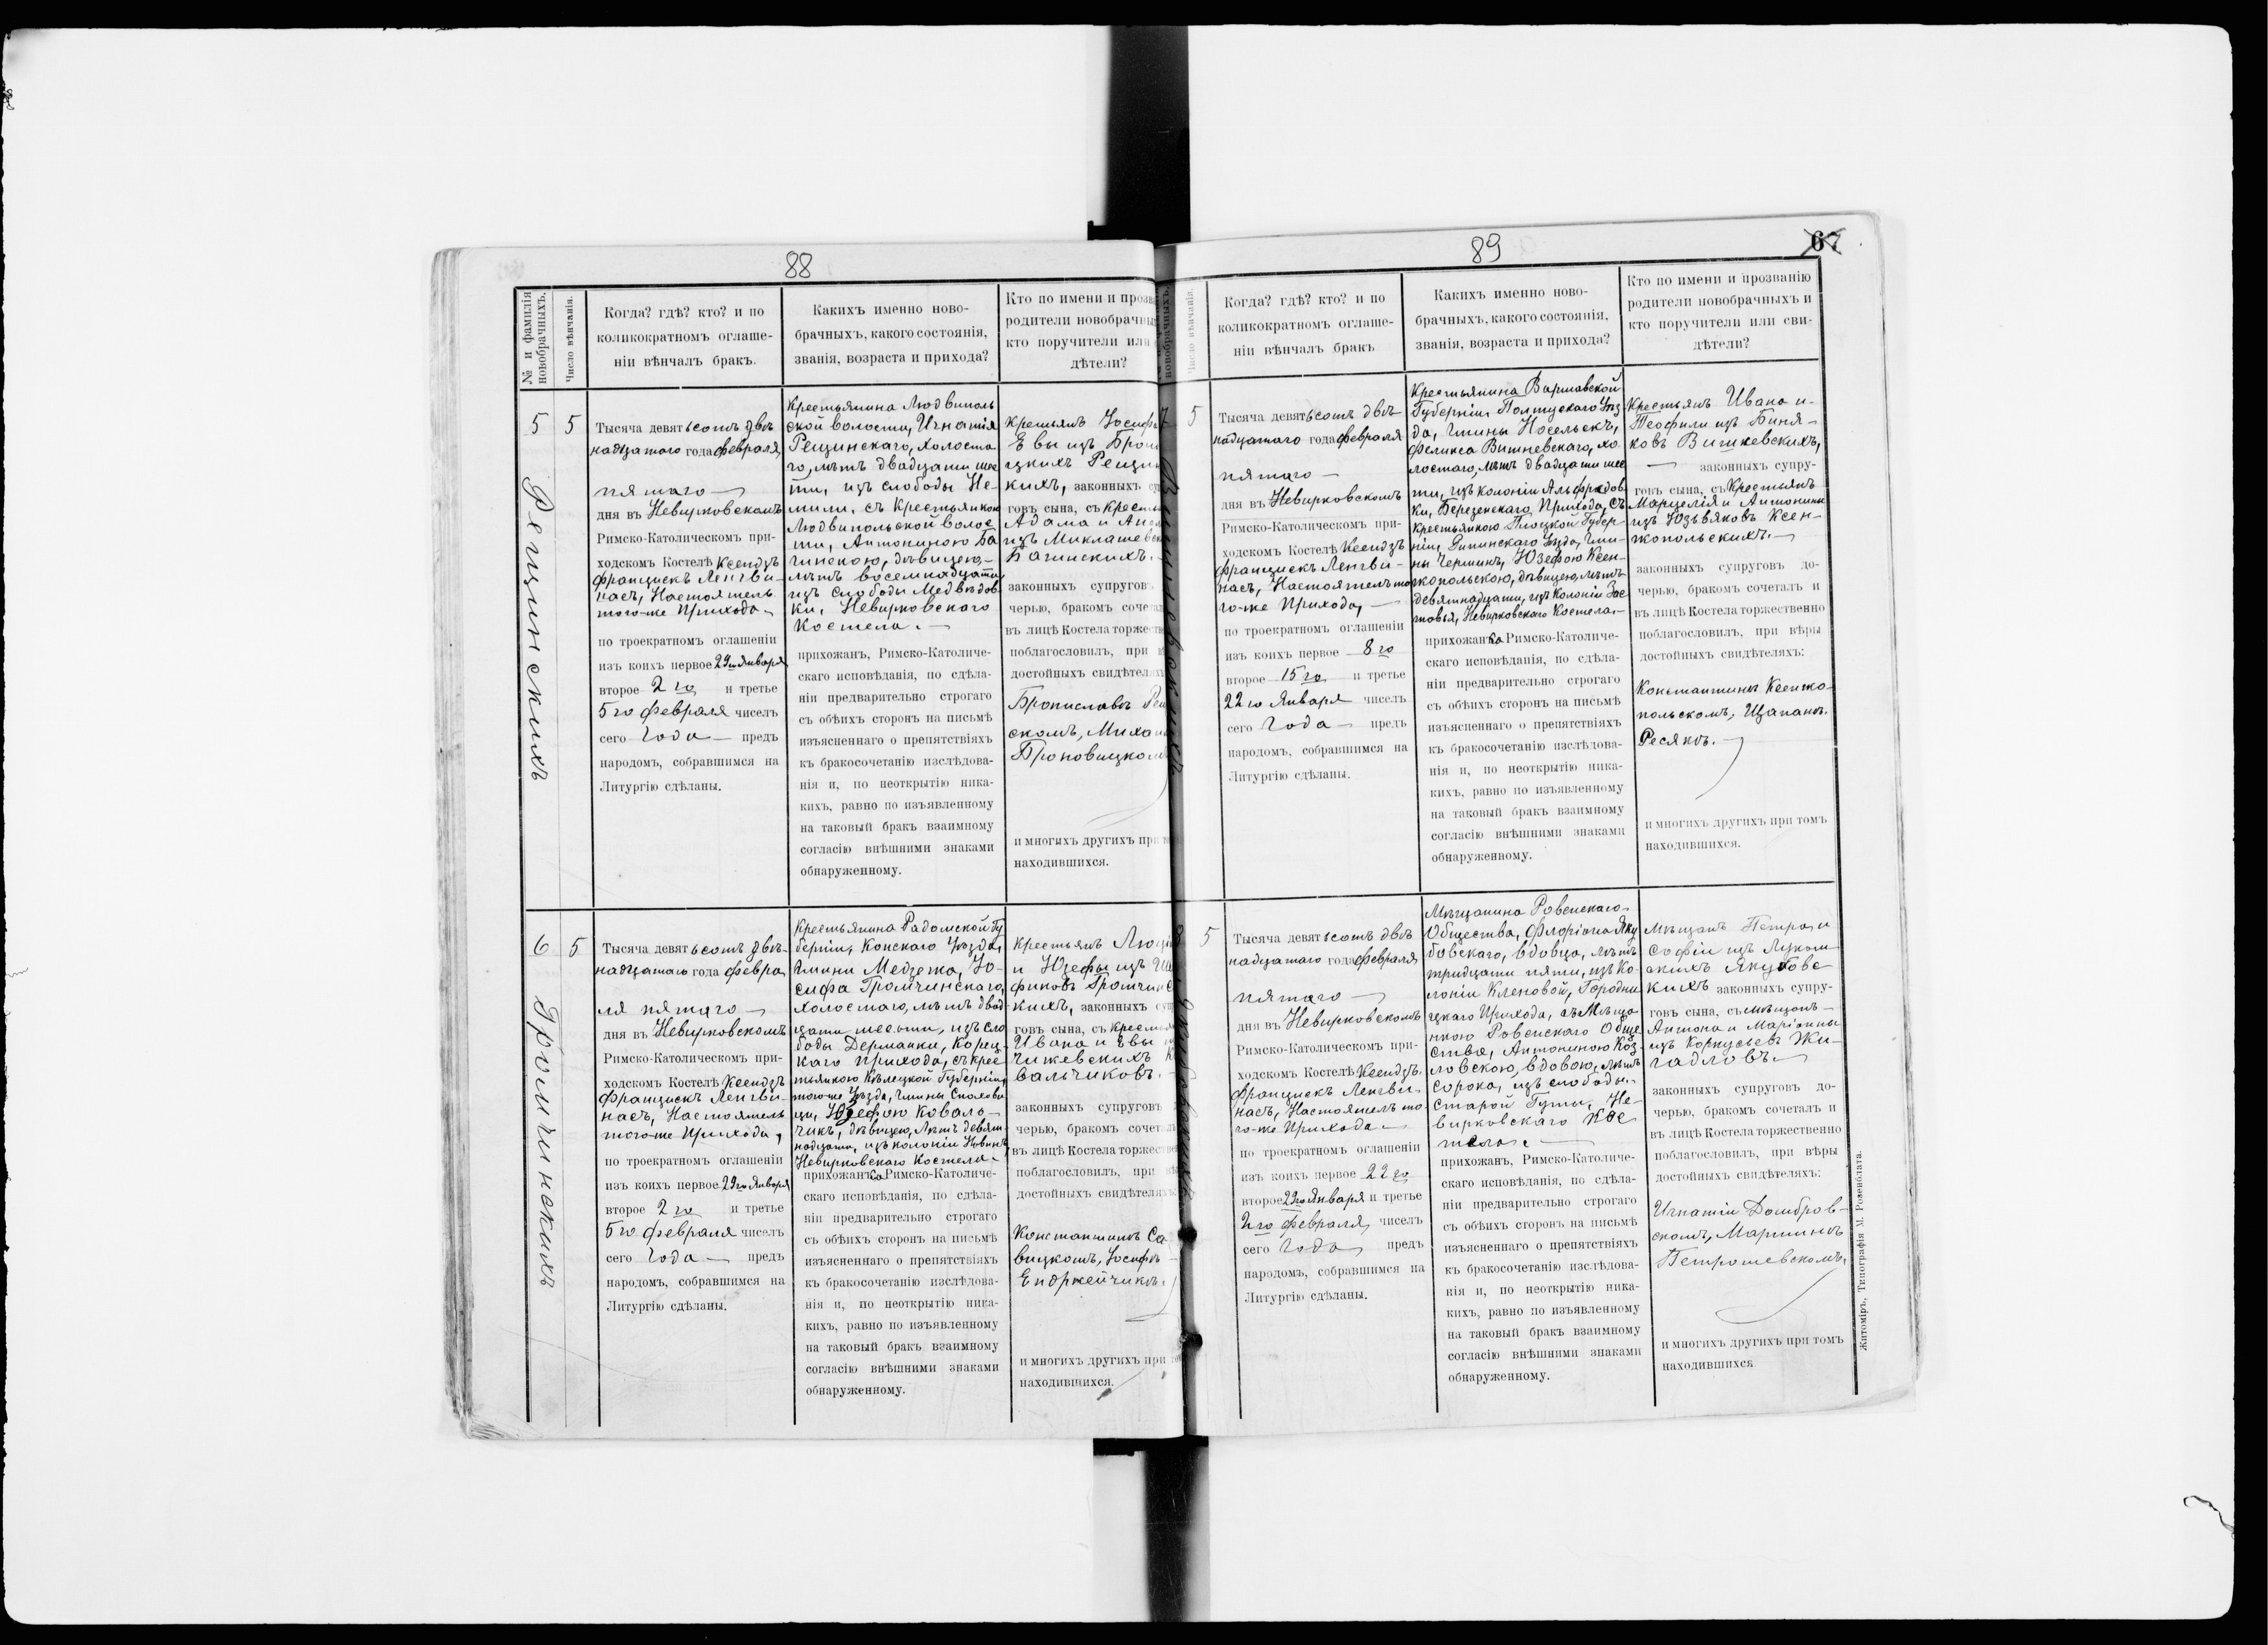 88
№ и фамилія
новобрачныхъ.
Число вѣнчанія.
Когда? гдѣ? кто? и по
коликократномъ оглаше-
ніи вѣнчалъ бракъ.
Каких​ъ именно ново-
брачныхъ, какого состоянія,
званія, возраста и прихода?
Кто по имени и прозв
родители новобрачны
кто поручители или
дѣтели?
5
Рещинскихъ
5
Тысяча девятьсотъ двѣ
надцатаго года февраля,
пятаго
дня въ Невирковскомъ
Римско-Католическомъ при-
ходскомъ Костелѣ Ксендзъ
Францискъ Ленгви-
насъ, Настоятель
того-же Прихода
по троекратномъ оглашеніи
изъ коихъ первое 29го Января
второе 2го и третье
5го февраля чиселъ
сего Года предъ
народомъ, собравшимся на
Литургію сдѣланы.
Крестьянина Людвиполь
ской волости, Игнатія
Рещинскаго, холоста
го, лѣтъ двадцати шес
ти, изъ слободы Не-
мили, съ Крестьянкою
Людвипольской волос
ти, Антониною Ба
гинскою, дѣвицею,
лѣтъ восемнадцати
изъ слободы Медвѣдов
ки, Невирковскаго
Костела.
прихожанъ, Римско-Католиче-
скаго исповѣданія, по сдѣла-
ніи предварительно строгаго
съ обѣихъ сторонъ на письмѣ
изъясненнаго о препятствіяхъ
къ бракосочетанію изслѣдова-
нія и, по неоткрытію ника-
кихъ, равно по изъявленному
на таковый бракъ взаимному
согласію внѣшними знаками
обнаруженному.
Крестьянъ Іосифа
Евы изъ Брон
цкихъ Рещин
кихъ, законныхъ су
говъ сына, съ Кресть
Адама и Анел
изъ Миклашевск
Багинскихъ.
законныхъ супруговъ
черью, бракомъ сочета
въ лицѣ Костела торжеств
поблагословилъ, при в
достойныхъ свидѣтеляхъ
Брониславъ Рещ
скомъ, Миха
Броновицком
и многихъ другихъ при т
находившихся.
6
Громчинскихъ
5
Тысяча девятьсотъ двѣ-
надцатаго года февра
ля пятаго
дня въ Невирковскомъ
Римско-Католическомъ при-
ходскомъ Костелѣ Ксендзъ
Францискъ Ленгви-
насъ, Настоятель
того-же Прихода,
по троекратномъ оглашеніи
изъ коихъ первое 29го Января
второе 2го и третье
5го февраля чиселъ
сего Года предъ
народомъ, собравшимся на
Литургію сдѣланы.
Крестьянина Радомской Гу
берніи, Конскаго Уѣзда,
Гмины Медзежа, Іо-
сифа Громчинскаго,
холостаго, лѣтъ двад
цати шести, изъ сло
боды Дерманки, Корец-
каго прихода, съ крес
тьянкою Кѣлецкой Губерніи,
того-же Уѣзда, Гмины
Юзефою Ковало-
чикъ, дѣвицею, лѣтъ девят
надцати, изъ колоніи Новинъ,
Невирковскаго Костела
прихожанъ Римско-Католиче-
скаго исповѣданія, по сдѣла-
ніи предварительно строгаго
съ обѣихъ сторонъ на письмѣ
изъясненнаго о препятствіяхъ
къ бракосочетанію изслѣдова-
нія и, по неоткрытію ника-
кихъ, равно по изъявленному
на таковый бракъ взаимному
согласію внѣшними знаками
обнаруженному.
Крестьянъ
и Юзефы изъ
фиковъ Громчинс
кихъ, законныхъ суп
говъ сына, съ Крестья
Ивана и Евы
чижевскихъ К
вальчиковъ.
законныхъ супруговъ
черью, бракомъ сочет
въ лицѣ Костела торжестве
поблагословилъ, при вѣ
достойныхъ свидѣтеляхъ
Константинъ Са
вицкомъ, Іосифъ
Ендржейчикъ.
и многихъ другихъ при то
находившихся.
89
67
новобрачныхъ.
Число вѣнчанія.
Когда? гдѣ? кто? и по
коликократномъ оглаше-
ніи вѣнчалъ бракъ
Какихъ именно ново-
брачныхъ, какого состоянія,
званія, возраста и прихода?
Кто по имени и прозванію
родители новобрачныхъ и
кто поручители или сви-
дѣтели?
7
Вишневскихъ
5
Тысяча девятьсотъ двѣ
надцатаго года февраля
пятаго
дня въ Невирковскомъ
Римско-Католическомъ при-
ходскомъ Костелѣ Ксендзъ
Францискъ Ленгви-
насъ, Настоятель то
го-же Прихода,
по троекратномъ оглашеніи
изъ коихъ первое 8го
второе 15го и третье
22го Января чиселъ
сего Года предъ
народомъ, собравшимся на
Литургію сдѣланы.
Крестьянина Варшавской
Губерніи, Полтускаго Уѣз
да, Гмины Носельскъ,
Феликса Вишневскаго, хо-
лостаго, лѣтъ двадцати шес
ти, изъ колоніи Альфредов
ки, Березенскаго Прихода, съ
Крестьянкою Плоцкой Губер-
ніи, Рипинскаго Уѣзда, Гми-
ны Черминъ, Юзефою Ксен-
жопольскою, дѣвицею, лѣтъ
девятнадцати, изъ Колоніи Зас
товья, Невирковскаго Костела,
прихожанъ Римско-Католиче-
скаго исповѣданія, по сдѣла-
ніи предварительно строгаго
съ обѣихъ сторонъ на письмѣ
изъясненнаго о препятствіяхъ
къ бракосочетанію изслѣдова-
нія и, по неоткрытію ника-
кихъ, равно по изъявленному
на таковый бракъ взаимному
согласію внѣшними знаками
обнаруженному.
Крестьянъ Ивана и
Теофили изъ Биня-
ковъ Вишневскихъ,
законныхъ супру-
говъ сына, съ Крестьянъ
Марцелія и Антонины
изъ Юзьвяковъ Ксен-
жопольскихъ.
законныхъ супруговъ до-
черью, бракомъ сочеталъ и
въ лицѣ Костела торжественно
поблагословилъ, при вѣры
достойныхъ свидѣтеляхъ:
Константинъ Ксенжо-
польскомъ, Щапанъ
Ресякъ.
и многихъ другихъ при томъ
находившихся.
8
Якубовскихъ
5
Тысяча девятьсотъ двѣ
надцатаго года февраля
пятаго
дня въ Невирковскомъ
Римско-Католическомъ при-
ходскомъ Костелѣ Ксендзъ
Францискъ Ленгви-
насъ, Настоятель то-
го-же Прихода
по троекратномъ оглашеніи
изъ коихъ первое 22го
второе 29го Января и третье
2го февраля чиселъ
сего Года предъ
народомъ, собравшимся на
Литургію сдѣланы.
Мѣщанина Ровенскаго
Общества, Флоріана Яку
бовскаго, вдовца, лѣтъ
тридцати пяти, изъ Ко-
лоніи Кленовой, Городни
цкаго Прихода, съ Мѣща-
нкою Ровенскаго Обще
ства, Антониною Коз-
ловскою, вдовою, лѣтъ
сорока, изъ слободы
Старой Гуты, Не-
вирковскаго Кос
тела.
прихожанъ, Римско-Католиче-
скаго исповѣданія, по сдѣла-
ніи предварительно строгаго
съ обѣихъ сторонъ на письмѣ
изъясненнаго о препятствіяхъ
къ бракосочетанію изслѣдова-
нія и, по неоткрытію ника-
кихъ, равно по изъявленному
на таковый бракъ взаимному
согласію внѣшними знаками
обнаруженному.
Мѣщанъ Петра и
Софіи изъ Луком-
скихъ Якубовс
кихъ законныхъ супру-
говъ сына, съ мѣщанъ
Антона и Маріанны
изъ Корпусевъ Жи-
гадловъ
законныхъ супруговъ до-
черью, бракомъ сочеталъ и
въ лицѣ Костела торжественно
поблагословилъ, при вѣры
достойныхъ свидѣтеляхъ:
Игнатіи Домбров-
скомъ, Мартинъ
Петрошевскомъ,
и многихъ другихъ при томъ
находившихся
Житоміръ, Типографія М. Розенблата.